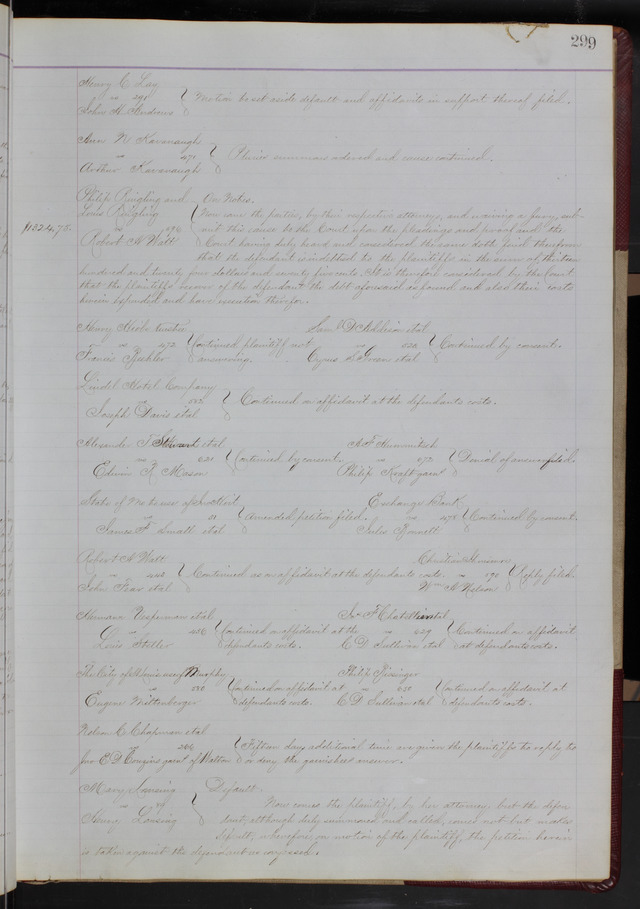 299
Henry C. Lay
vs 295 Motion to set aside default and affidavits in support thereof filed.
John H. Andrews
Ann N Kavanaugh
vs 471 Pluries summons ordered and cause continued.
Arthur Kavanaugh
Philip Ringling and On Notes.
Louis Ringling Now came the parties, by their respective attorneys, and waiving a jury, sub-
$1324.75. vs 596 mit this cause to the Court upon the pleadings and proof and the
Robert A Watt Court having duly heard and considered the same doth find therefrom
that the defendant is indebted to the plaintiffs in the sum of thirteen
hundred and twenty four dollars and seventy five cents. It is therefore considered by the Court
that the plaintiffs recover of the defendant the debt aforesaid as found and also their costs
herein expended and have execution therefor.
Henry
vs 472 Continued plaintiff not answering.
Francis
Saml D Addrian etal
vs Continued by consent.
Cyrus etal
Lindel Hotel Company
vs 552 Continued on affidavit at the defendants costs.
Joseph Davis etal
Alexander T Stewart etal
vs 621 Continued by consent
Edwin R Mason
vs 672 Denial of answer filed.
Philip Kraft garnt
State of Mo to use of
vs 21 Amended petition filed.
James F. Small etal
Exchange Bank
vs 475 Continued by consent.
Jules
Robert A Watt
vs Continued as on affidavit at the defendants costs.
John etal
Christian
vs 590 Reply filed.
Wm A Nelson
Hermann Vesperman etal
vs 456 Continued on affidavit at the
Louis defendants costs.
vs 629 Continued on affidavit
E D Sullivan etal at defendants costs.
The City of St Louis use of Murphy
vs 530 Continued on affidavit at
Eugene Miltenberger defendants costs.
Philip
vs 631 Continued on affidavit at
E D Sullivan etal defendants costs.
Nelson C. Chapman etal
vs 266 Fifteen days additional time are given the plaintiffs to reply to
E D Couzins garnt of Walton or deny the garnishees answer.
Mary Lansing Default.
vs 19 Now comes the plaintiff, by her attorney but the defen-
Henry Lansing dant, although duly summoned and called, comes not but makes
default, wherefore on motion of the plaintiff, the petition herein
is taken against the defendant as confessed.